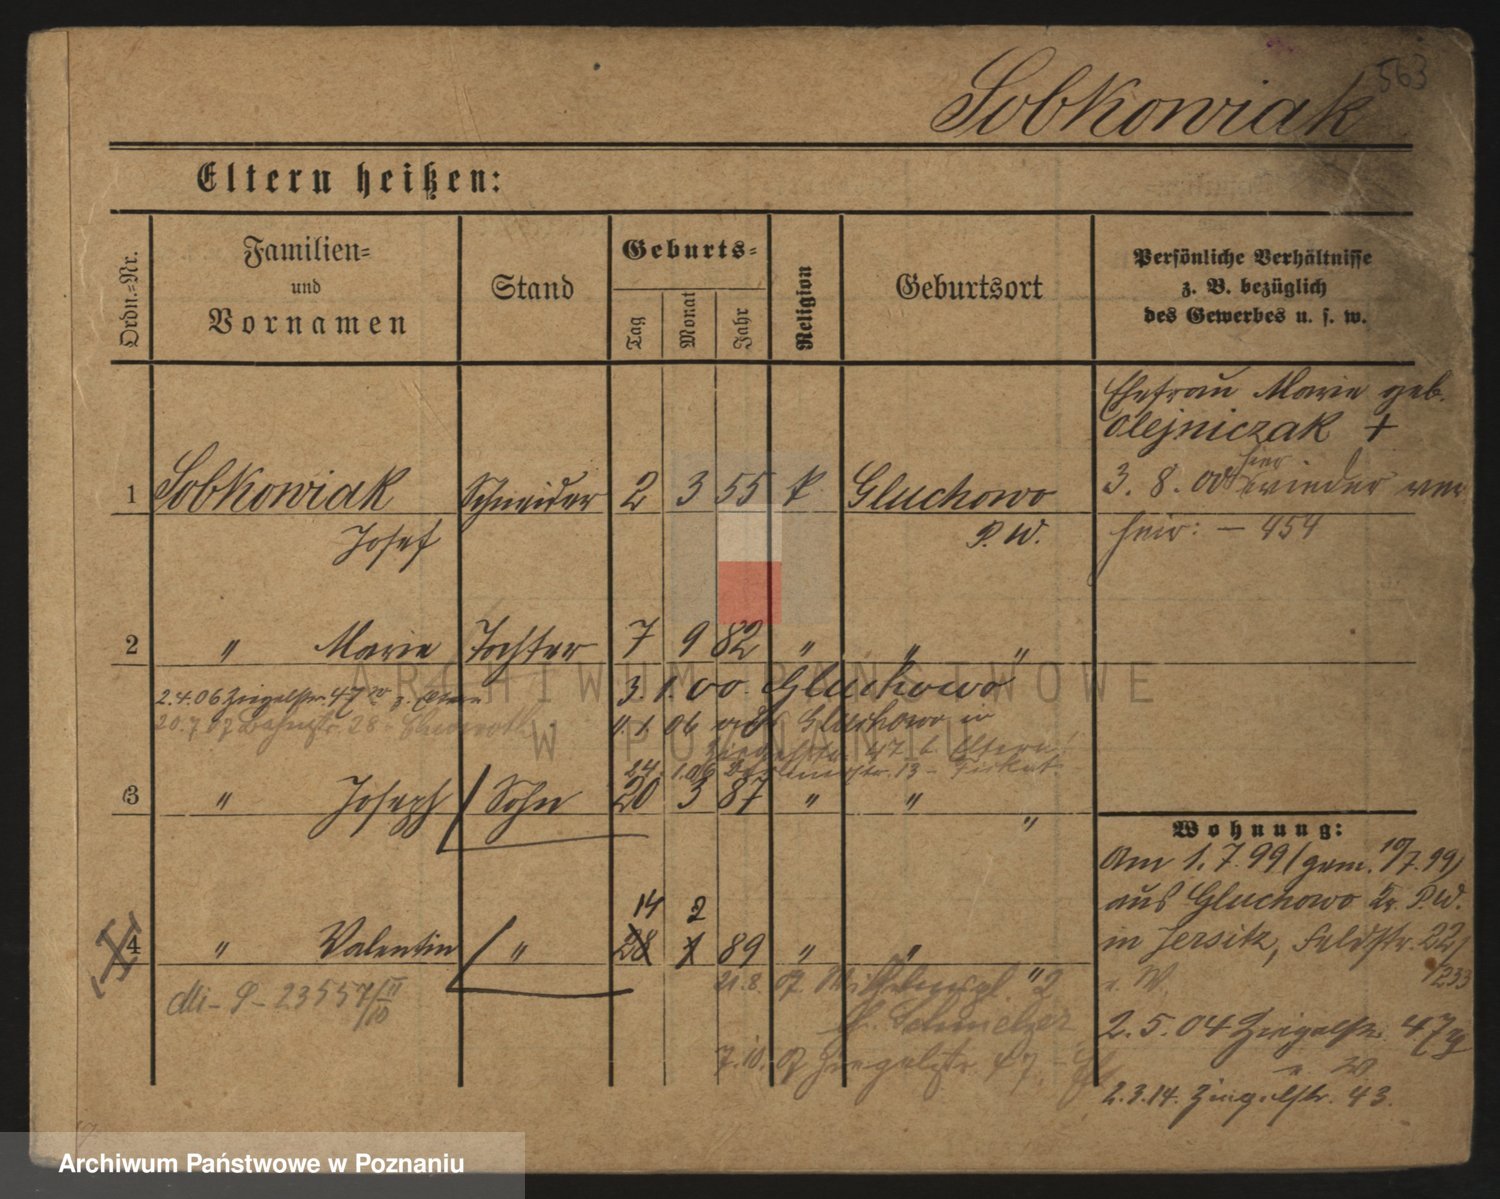 563
Sobkowiak
Eltern heißen:
Ordn.-Nr.
Familien-
und
Vornamen
Stand
Geburts-
Tag
Monat
Jahr
Religion
Geburtsort
Persönliche Verhältnisse
z. B. bezüglich
des Gewerbes u. s. w.
Ehefrau Marie geb.
Olejniczak +
1 Sobkowiak Schneider 2 3 55 k. Gluchowo
Josef P. W.
3. 8. 00 hier wieder ver
heir: - 454
2 " Marie Tochter 7 9 82 " " "
2.4.06 Ziegelstr. 47 z. Eltern
3. 1. 00. Gluchowo
20.7.07 Bahnstr. 28 -
11. 1. 06 aus Gluchowo in
Ziegelstr. 47 b. Eltern!
24. 1.06 13 -
3 " Joseph Sohn 20 3 87 " " "
Wohnung:
Am 1. 7. 99 (gem. 10/7. 99)
aus Gluchowo Kr. P.W.
in Jersitz, Feldstr. 22/
233
14 2
4 " Valentin " 28 1 89 " " "
Mi - P - 23557/II/10
21. 8. 07 Wilhelmspl. 2
b. Schmelzer
2. 5. 04 Ziegelstr. 47
7. 10. 07 Ziegelstr. 47 -
2.3.14. Ziegelstr. 43.
ARCHIWUM PAŃSTWOWE
W POZNANIU
Archiwum Państwowe w Poznaniu